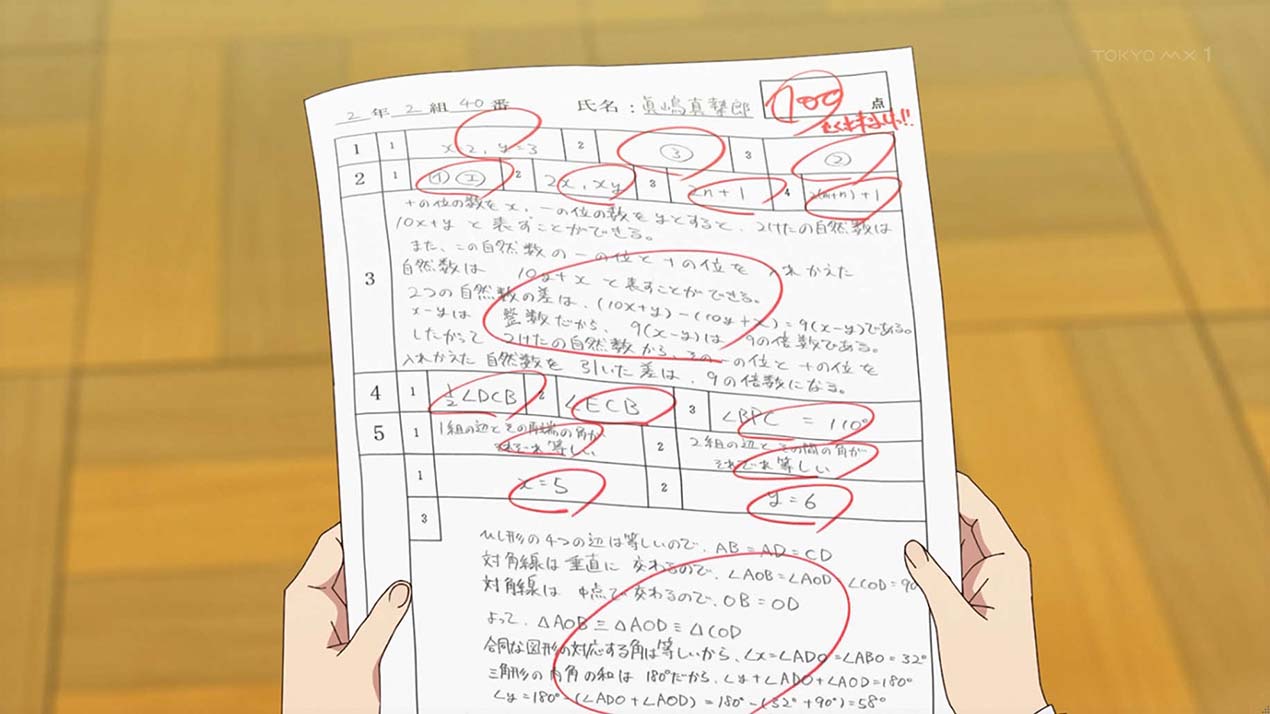 TOKYO MX 1
2年2組40番 氏名:眞嶋真拏郎 100点
1 1 x=2, y=3 2 ③ 3 ②
2 1 ① ② 2 2x, xy 3 2n+1 4 2(m+n)+1
3
十の位の数をx、一の位の数をyとすると、2けたの自然数は
10x+y と表すことができる。
また、この自然数の一の位と十の位を入れかえた
自然数は 10y+x と表すことができる。
2つの自然数の差は、(10x+y)-(10y+x)=9(x-y)である。
x-yは 整数だから、9(x-y)は 9の倍数である。
したがって 2けたの自然数から、その一の位と十の位を
入れかえた自然数を引いた差は、9の倍数になる。
4 1 ½∠DCB 2 ∠ECB 3 ∠BPC = 110°
5 1 1組の辺とその両端の角が 2 2組の辺とその間の角が
それぞれ等しい それぞれ等しい
1 x=5 2 y=6
3
ひし形の4つの辺は等しいので、AB=AD=CD
対角線は垂直に交わるので、∠AOB=∠AOD ∠COD=90
対角線は中点で交わるので、OB=OD
よって、△AOB≡△AOD≡△COD
合同な図形の対応する角は等しいから、∠x=∠ADO=∠ABO=32°
三角形の内角の和は180°だから、∠y+∠ADO+∠AOD=180°
∠y=180°-(∠ADO+∠AOD)=180°-(32°+90°)=58°